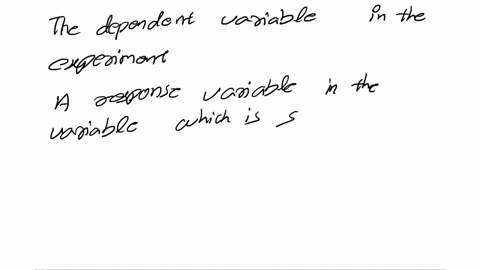 The dependent variable in the
experiment
A response variable in the
variable which is s